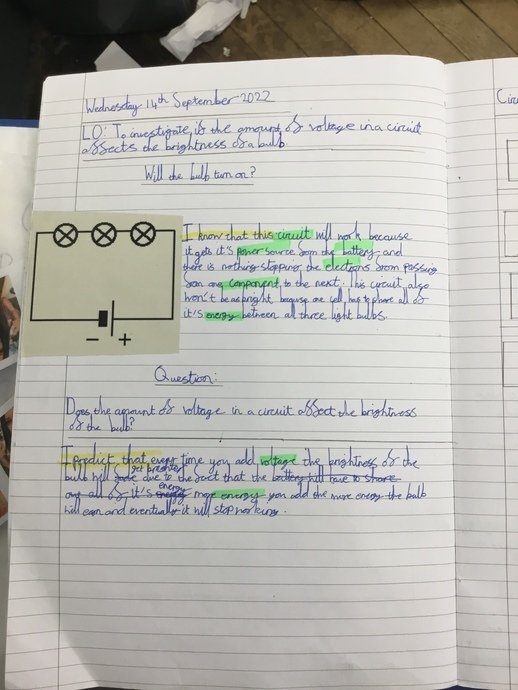 Wednesday 14th September 2022
LO: To investigate if the amount of voltage in a circuit
affects the brightness of a bulb.
Will the bulb turn on?
I know that this circuit will work because
it gets it's power source from the battery and
there is nothing stopping the electrons from passing
from one component to the next. This circuit also
won't be as bright because one cell has to share all of
it's energy between all three light bulbs.
− +
Question:
Does the amount of voltage in a circuit affect the brightness
of the bulb?
I predict that every time you add voltage the brightness of the
get brighter
bulb will fade due to the fact that the battery will have to share
energy
out all of it's energy more energy you add the more energy the bulb
will earn and eventually it will stop working.
Circ